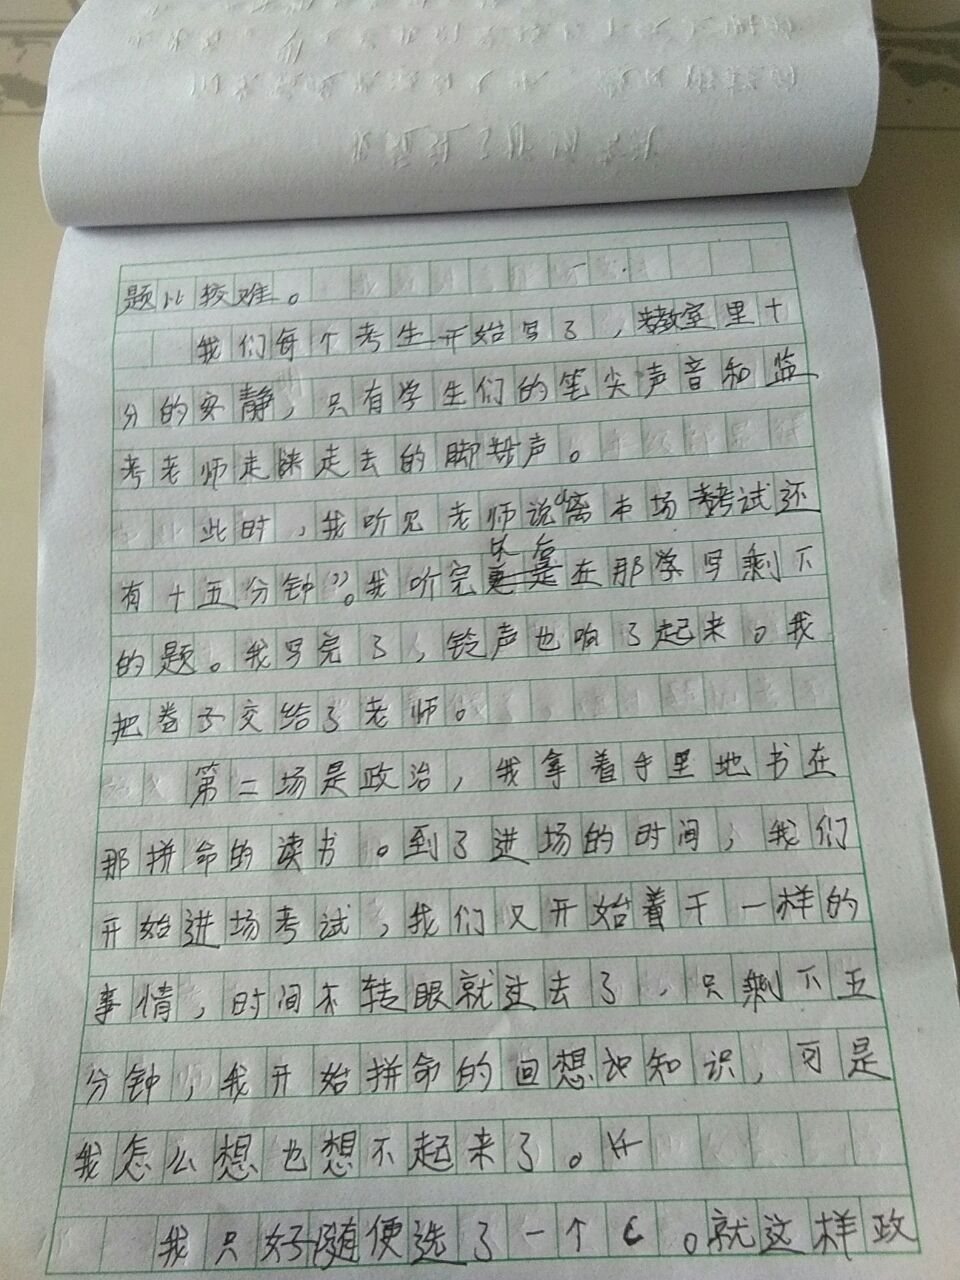 题比较难。
我们每个考生开始写了，教室里十
分的安静，只有学生们的笔尖声音和监
考老师走来走去的脚步声。
此时，我听见老师说“离本场考试还
有十五分钟”。我听完在那学写剩下
的题。我写完了，铃声也响了起来。我
把卷子交给了老师。
第二场是政治，我拿着手里地书在
那拼命的读书。到了进场的时间，我们
开始进场考试，我们又开始着干一样的
事情，时间不转眼就过去了，只剩下五
分钟，我开始拼命的回想知识，可是
我怎么想也想不起来了。
我只好随便选了一个C。就这样政